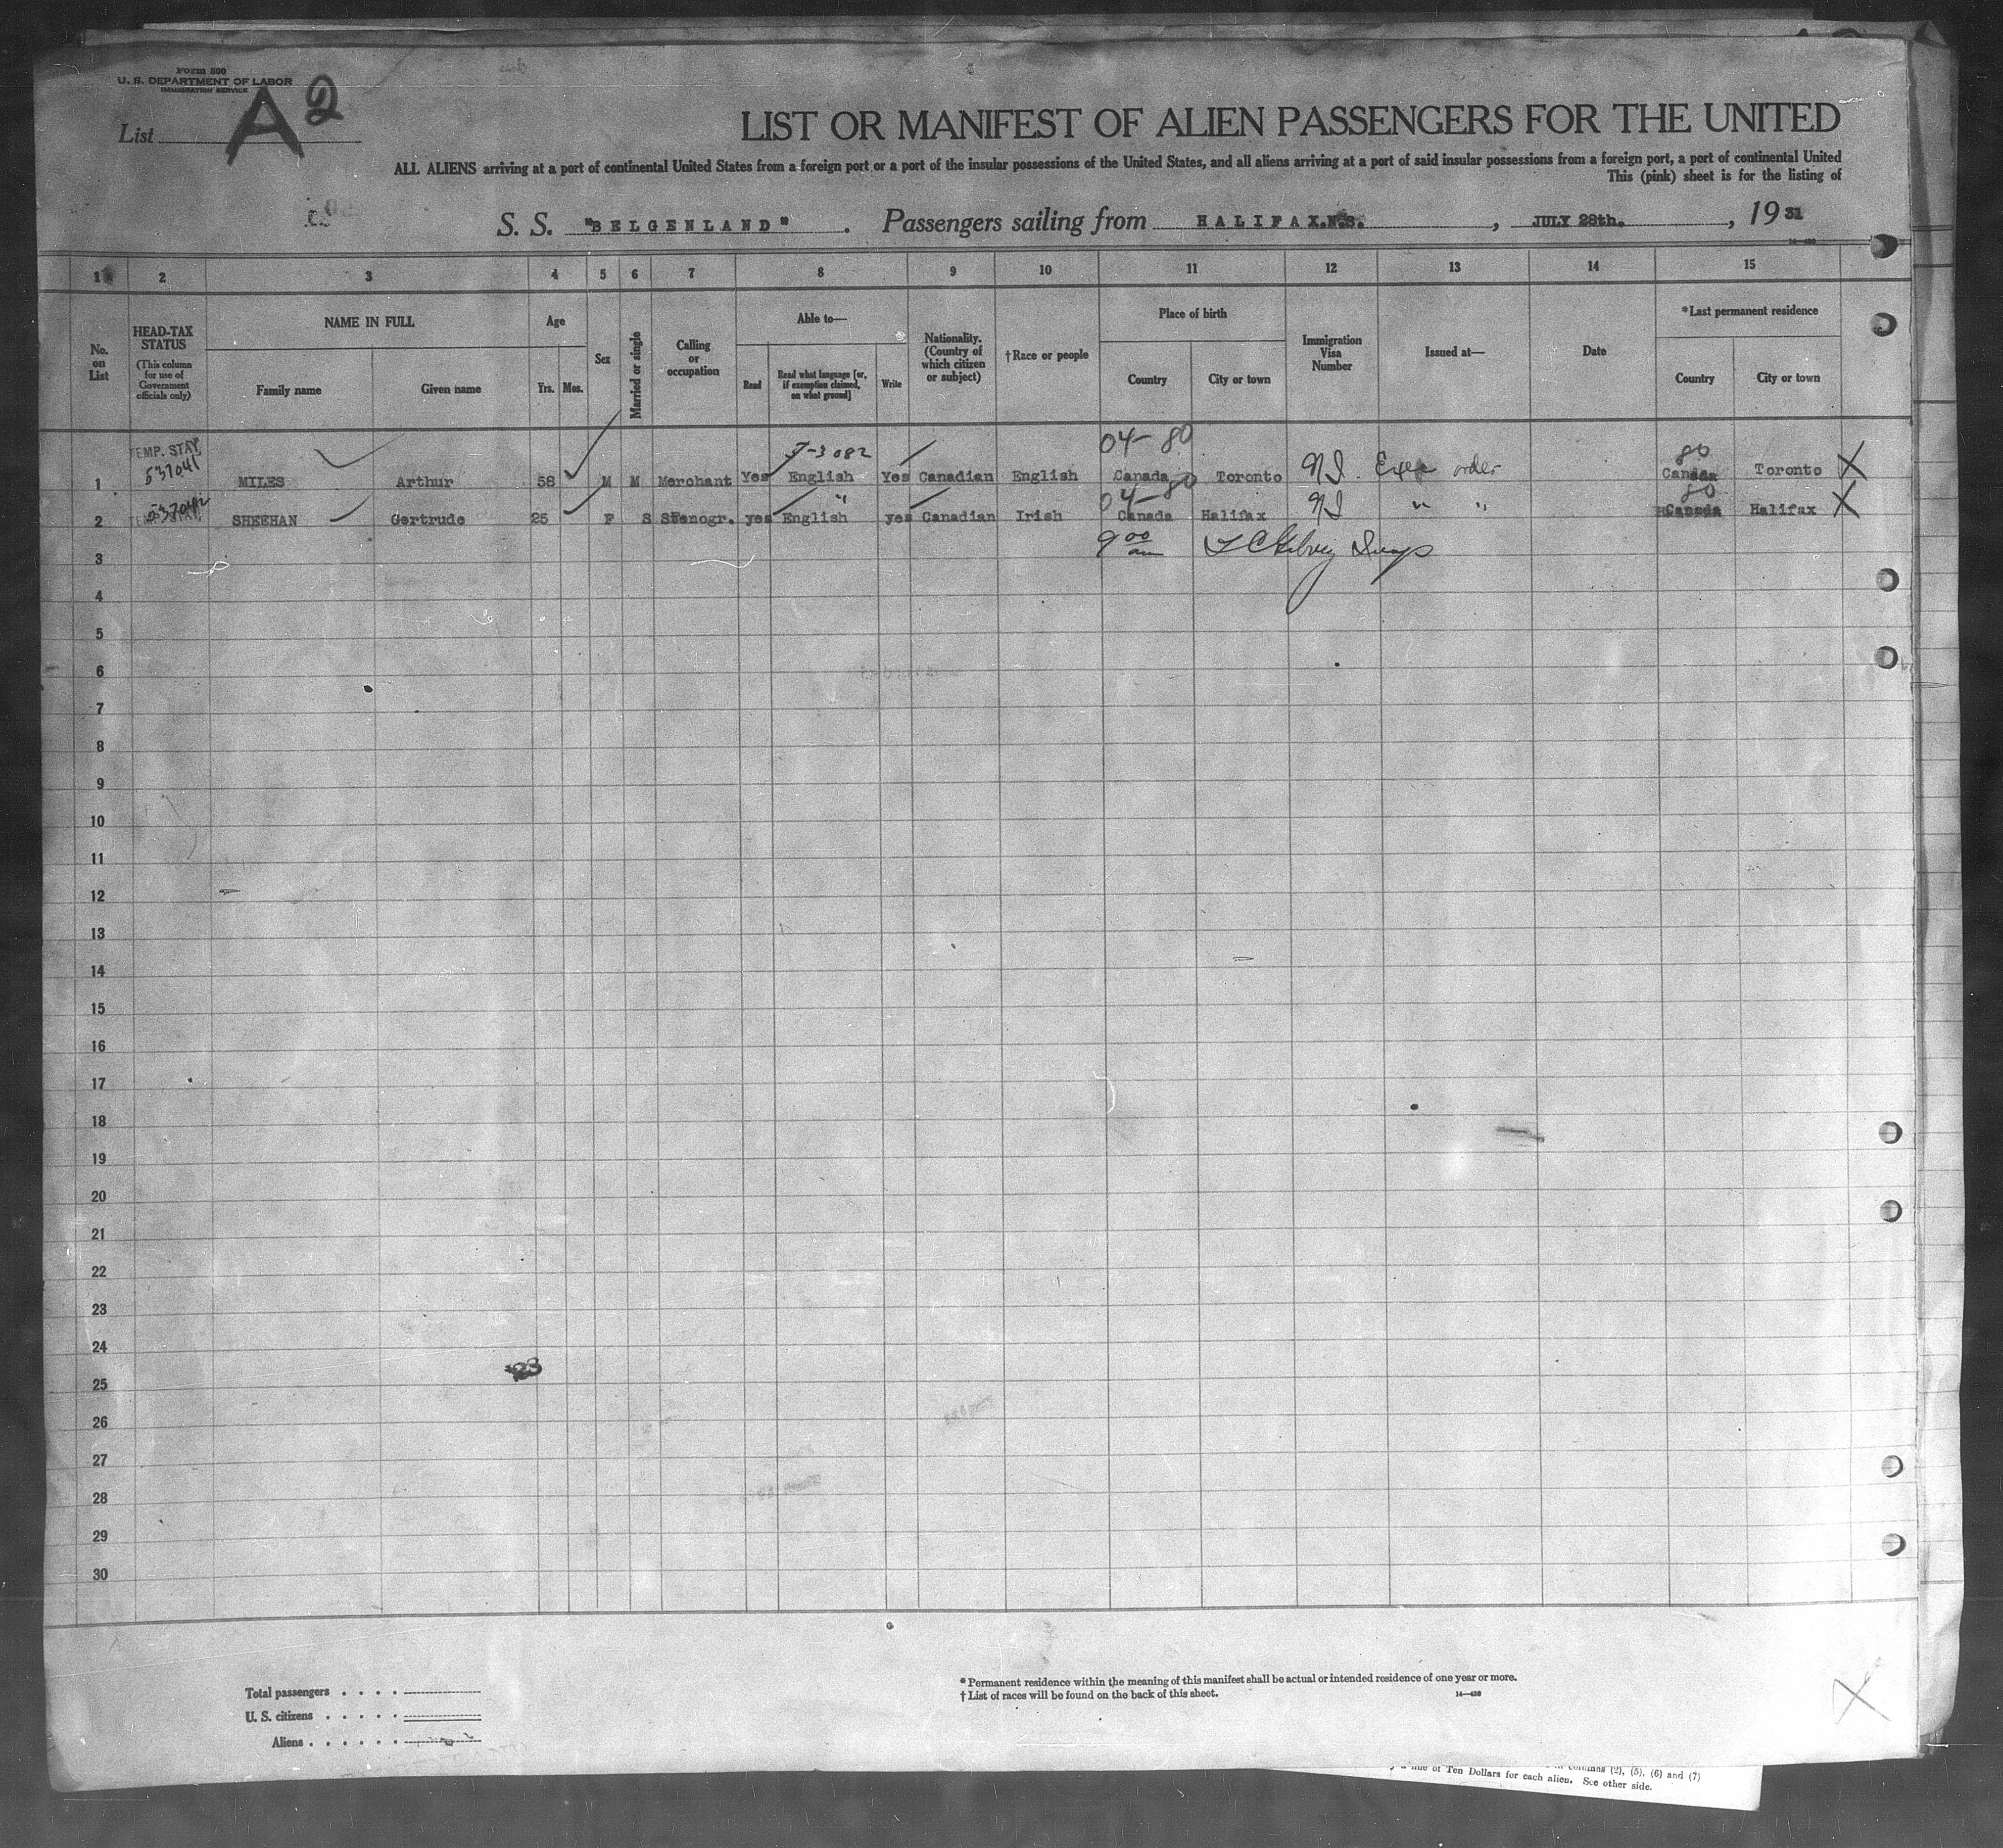 Form 500
U. S. DEPARTMENT OF LABOR
IMMIGRATION SERVICE
List A 2
LIST OR MANIFEST OF ALIEN PASSENGERS FOR THE UNITED
ALL ALIENS arriving at a port of continental United States from a foreign port or a port of the insular possessions of the United States, and all aliens arriving at a port of said insular possessions from a foreign port, a port of continental United
This (pink) sheet is for the listing of
S. S. "BELGENLAND". Passengers sailing from HALIFAX.N.S., JULY 28th., 19 31
1 2 3 4 5 6 7 8 9 10 11 12 13 14 15
No. on List
HEAD-TAX STATUS
(This column for use of Government officials only)
NAME IN FULL
Family name Given name
Age
Yrs. Mos.
Sex
Married or single
Calling or occupation
Able to—
Read Read what language [or, if exemption claimed, on what ground] Write
Nationality. (Country of which citizen or subject)
†Race or people
Place of birth
Country City or town
Immigration Visa Number
Issued at—
Date
*Last permanent residence
Country City or town
TEMP. STAY 5-3082 04-80 80
1 537041 MILES Arthur 58 M M Merchant Yes English Yes Canadian English Canada Toronto NI Exec order Canada Toronto X
04-80 80
2 537042 TEMP. STAY SHEEHAN Gertrude 25 F S Stenogr. yes English " yes Canadian Irish Canada Halifax NI " " Canada Halifax X
3 9 00 am
4
5
6
7
8
9
10
11
12
13
14
15
16
17
18
19
20
21
22
23
24
25
26
27
28
29
30
Total passengers
U. S. citizens
Aliens
* Permanent residence within the meaning of this manifest shall be actual or intended residence of one year or more.
† List of races will be found on the back of this sheet.
14—430
X
columns (2), (5), (6) and (7)
of Ten Dollars for each alien. See other side.